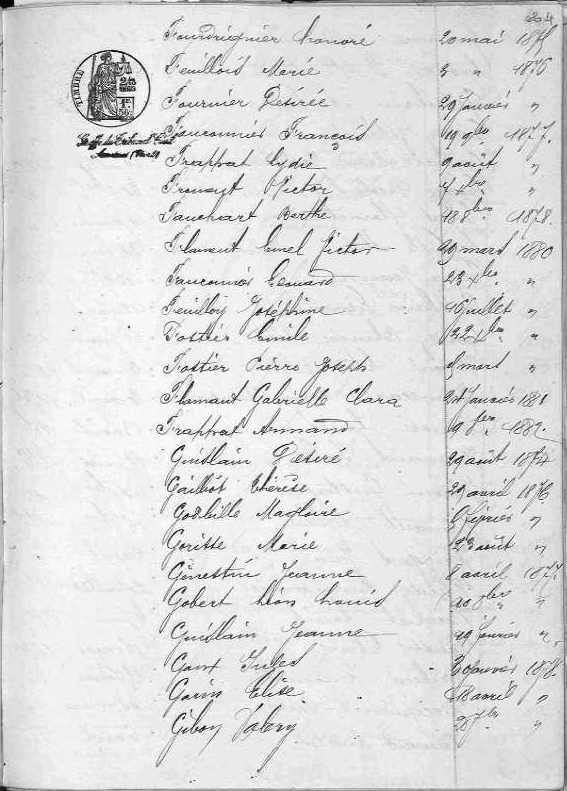 204
Fourdrignier Honoré 20 mai 1875
Feuillois Marie 3 " 1876
Fournier Désirée 29 Janvier "
Fauconnier François 19 9bre 1877.
Frappat Lydie 9 août "
Victor "
Fauchart Berthe 18 8bre 1878.
Flament Emel Victor 29 mars 1880
Fauconnier Léonard 23 Xbre "
Feuillois Joséphine 16 juillet "
Fostier Emile 22 Xbre "
Fostier Pierre Joseph 8 mars "
Flamant Gabrielle Clara 24 Janvier 1881
Frappat Armand 9 fer 1882.
Guislain Désiré 29 août 1874
Gaillot Thérèse 29 avril 1876
Godbille Magloire 6 février "
Goritte Marie 23 août "
Génestin Jeanne 8 avril 1877.
Gobert Léon Louis 20 8bre "
Guislain Jeanne 19 Janvier ".
Goux Jules 30 Janvier 1878.
Gorin Elise 18 avril "
Giboy Valery 28 7bre "
TIMBRE